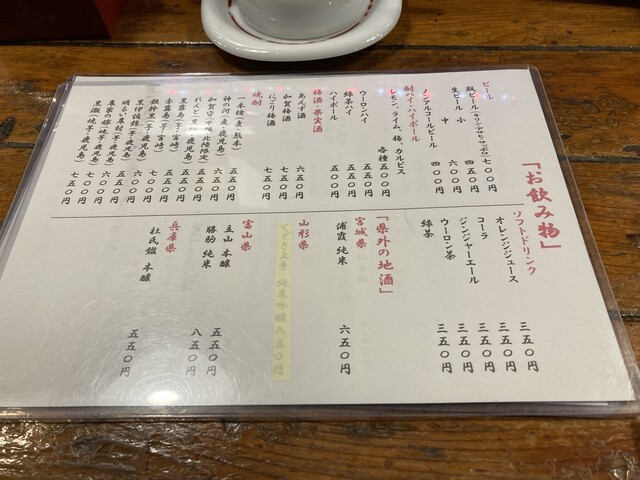 「お飲み物」
ビール
瓶ビール(キリン・アサヒ・サッポロ) 七〇〇円
生ビール 小 四五〇円
中 六〇〇円
ノンアルコールビール 四〇〇円
酎ハイ・ハイボール
レモン、ライム、梅、カルピス 各種五〇〇円
ウーロンハイ 五〇〇円
緑茶ハイ 五〇〇円
ハイボール 五〇〇円
梅酒・果実酒
あんず酒 六五〇円
加賀梅酒 五五〇円
にごり梅酒 七五〇円
焼酎
一本槍(麦・熊本)
神の河(麦・鹿児島) 五五〇円
加賀守(甲類・北陸限定) 六五〇円
れんと(黒糖・鹿児島) 五五〇円
黒霧島(芋・宮崎) 五五〇円
赤霧島(芋・宮崎)
鉄幹(芋・鹿児島) 七〇〇円
黒伊佐錦(芋・鹿児島) 五五〇円
明るい農村(芋・鹿児島) 六〇〇円
農家の嫁(焼芋・鹿児島) 七〇〇円
黒瀬(焼芋・鹿児島) 七五〇円
ソフトドリンク
オレンジジュース 三五〇円
コーラ 三五〇円
ジンジャーエール 三五〇円
ウーロン茶 三五〇円
緑茶 三五〇円
「県外の地酒」
宮城県
浦霞 純米 六五〇円
山形県
くどき上手 純米吟醸 八五〇円
富山県
立山 本醸 五五〇円
勝駒 純米 八五〇円
兵庫県
杜氏鑑 本醸 五五〇円